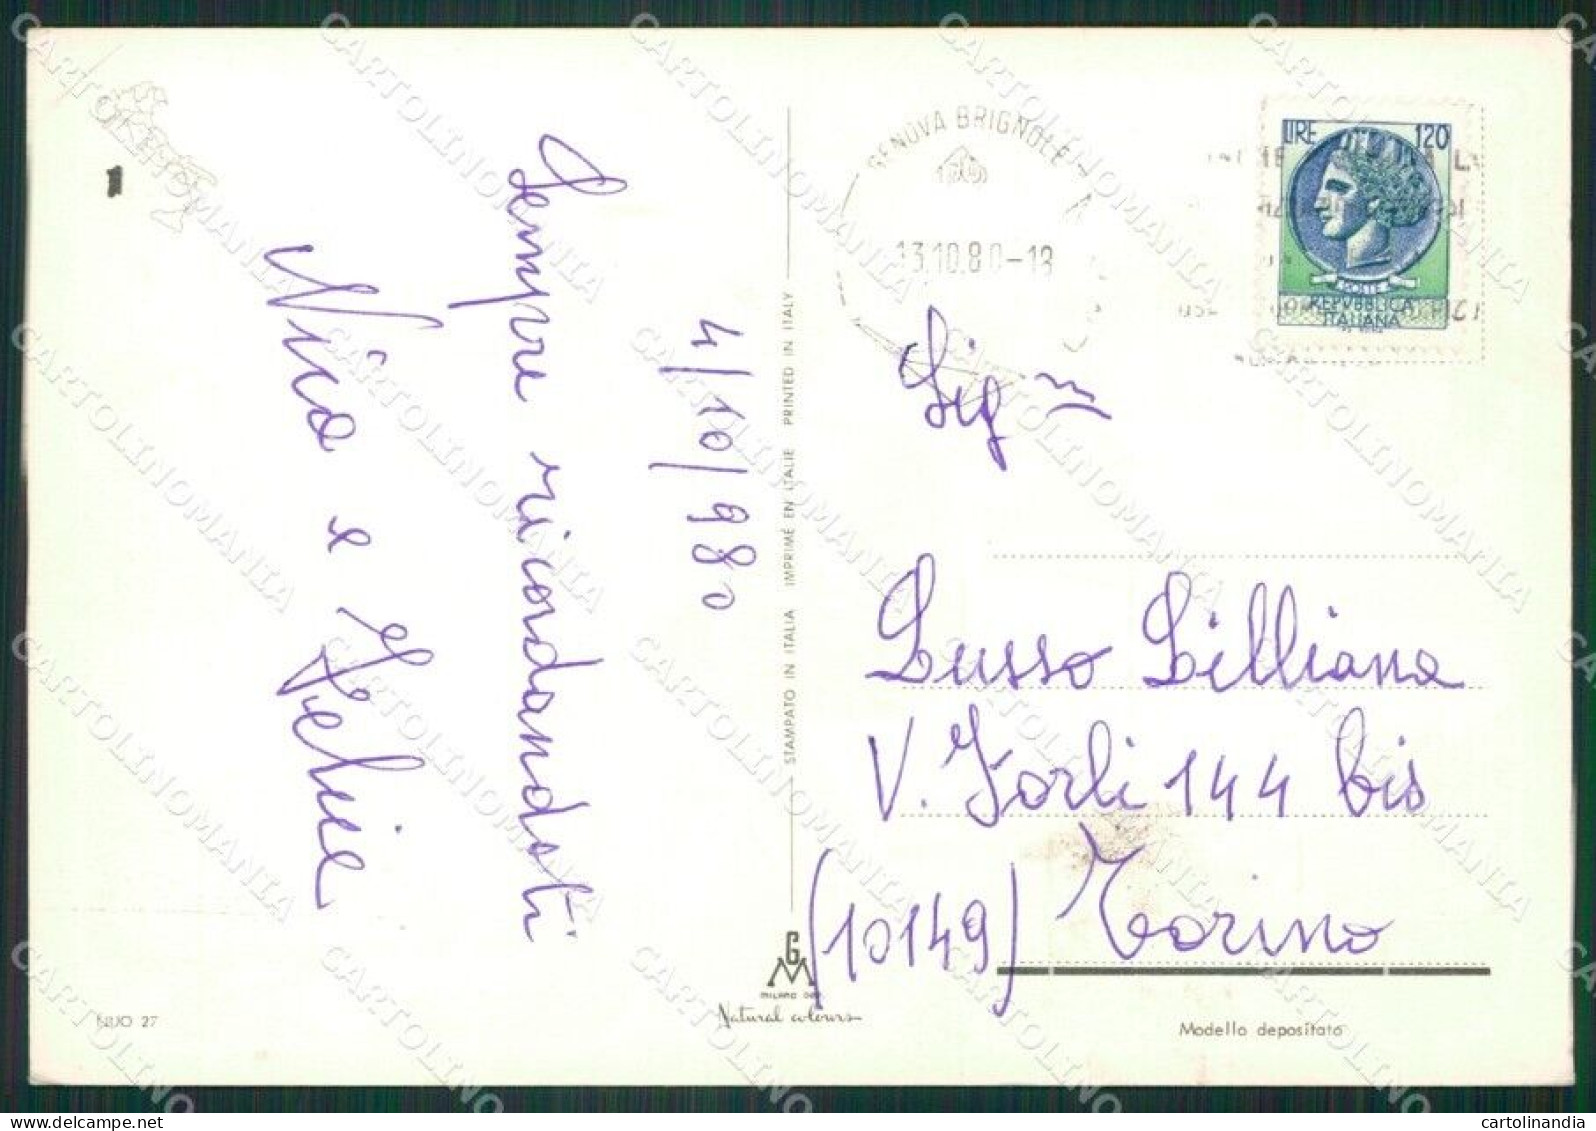 4/10/980
Sempre ricordandoti
Nico e
STAMPATO IN ITALIA IMPRIMÉ EN ITALIE PRINTED IN ITALY
GENOVA BRIGNOLE
13.10.80-18
LIRE 120
POSTE
REPVBBLICA
ITALIANA
Sig
Lusso Lilliana
V. Forlì 144 bis
(10149) Torino
GM
MILANO
Natural colours
27
Modello depositato
CARTOLINOMANIA
cartolinandia